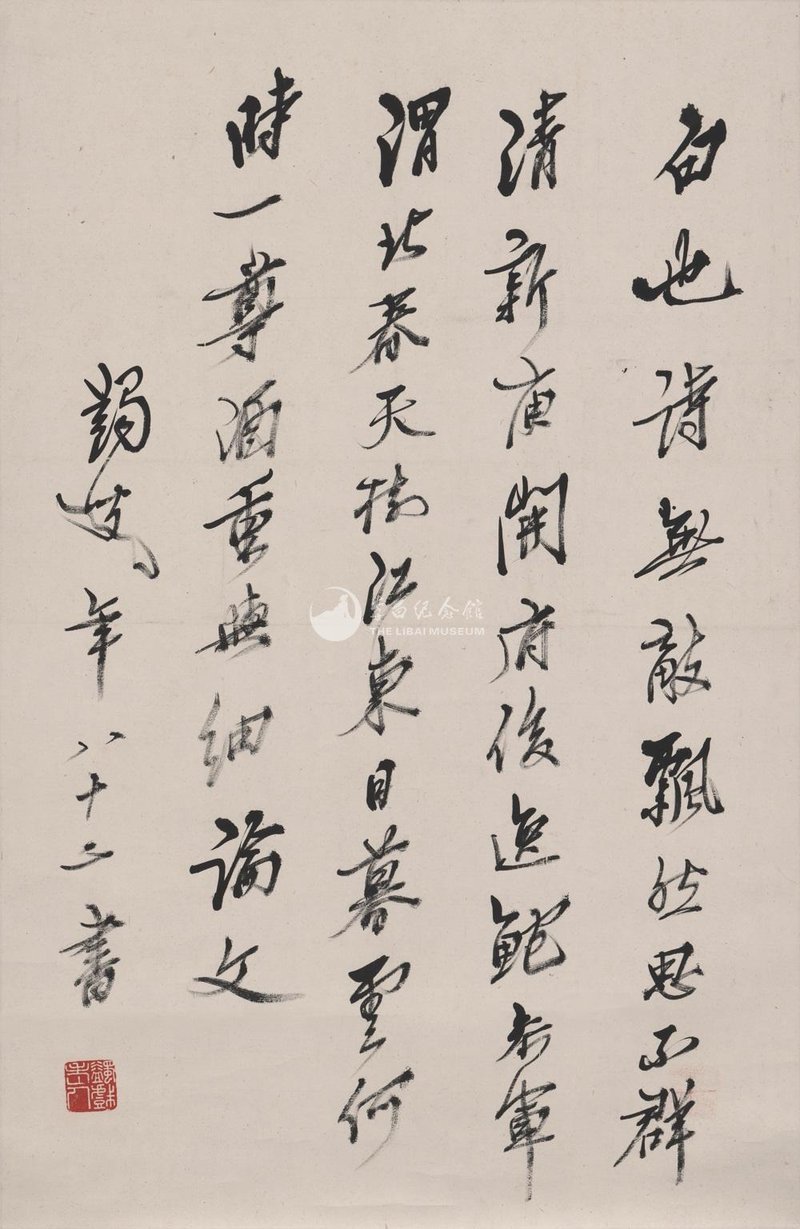 白也詩無敵飄然思不群
清新庾開府俊逸鮑参軍
渭北春天樹江東日暮雲何
時一尊酒重與細論文
蠲叟年八十二書
蠲戲老人
李白纪念馆
THE LIBAI MUSEUM